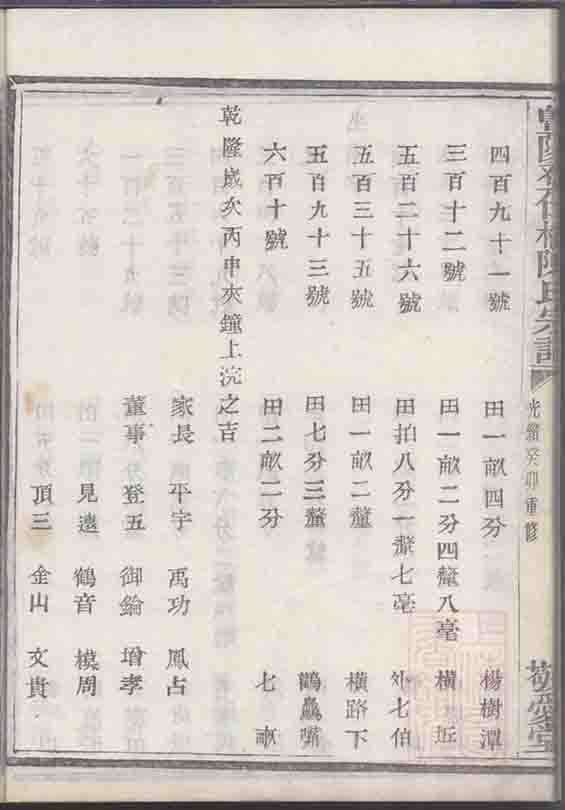 陳氏宗譜
光緒癸卯重修
敬愛堂
四百九十一號 田一畝四分 楊樹潭
三百十二號 田一畝二分四釐八毫 橫坵
五百二十六號 田拍八分一釐七毫 七伯
五百三十五號 田一畝二釐 橫路下
五百九十三號 田七分三釐 鸛鳥嘴
六百十號 田二畝二分 七畝
乾隆歲次丙申夾鐘上浣之吉
家長 平宇 禹功 鳳占
董事 登五 御鑰 增孝
見遠 鶴音 模周
頂三 金山 文貴